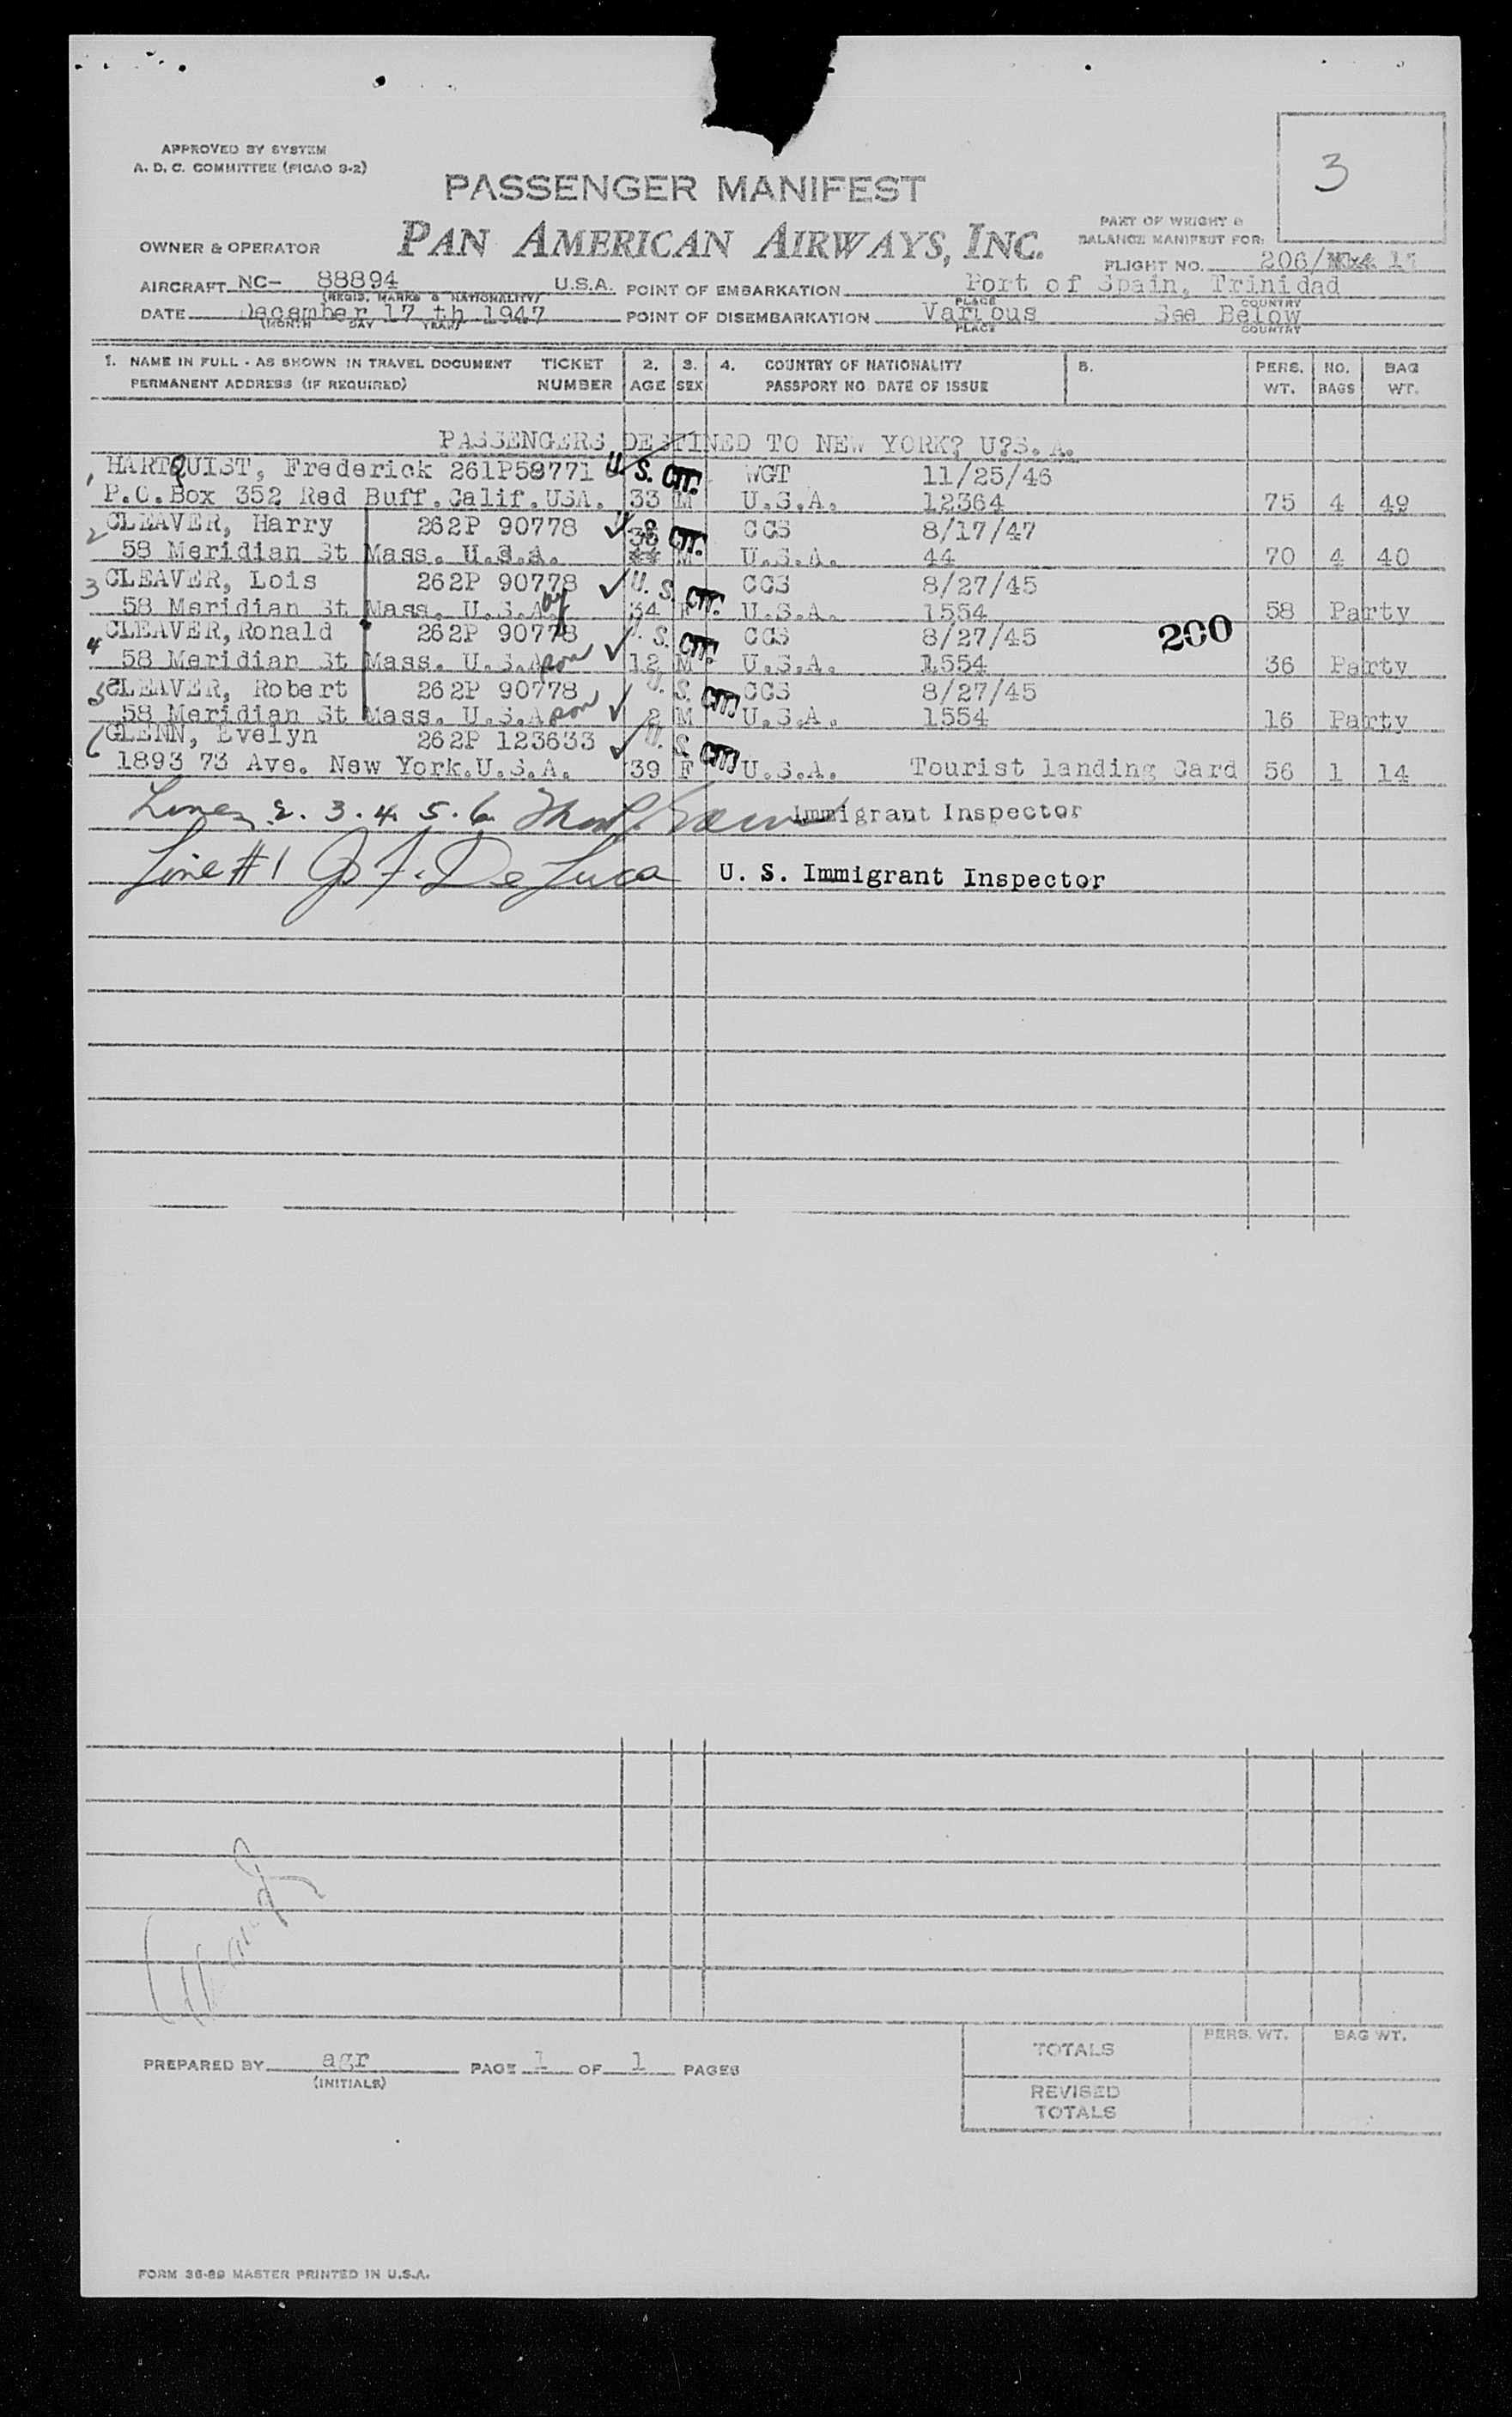 3
APPROVED BY SYSTEM
A. D. C. COMMITTEE (PICAO 9-2)
PASSENGER MANIFEST
PAN AMERICAN AIRWAYS, INC.
PART OF WEIGHT &
BALANCE MANIFEST FOR:
OWNER & OPERATOR
FLIGHT NO. 206/
AIRCRAFT NC- 88894 U.S.A. POINT OF EMBARKATION Port of Spain, Trinidad
(REGIS. MARKS & NATIONALITY) PLACE COUNTRY
DATE December 17 th 1947 POINT OF DISEMBARKATION Various See Below
(MONTH DAY YEAR) PLACE COUNTRY
1. NAME IN FULL - AS SHOWN IN TRAVEL DOCUMENT TICKET 2. 3. 4. COUNTRY OF NATIONALITY 5. PERS. NO. BAG
PERMANENT ADDRESS (IF REQUIRED) NUMBER AGE SEX PASSPORT NO. DATE OF ISSUE WT. BAGS WT.
PASSENGERS DESTINED TO NEW YORK? U?S.A.
1 HARTQUIST, Frederick 261P59771 U.S. CIT. WGT 11/25/46
P.O.Box 352 Red Buff.Calif.USA. 33 M U.S.A. 12364 75 4 49
2 CLEAVER, Harry 262P 90778 ✓ U.S. CIT. 36 CCS 8/17/47
58 Meridian St Mass. U.S.A. M U.S.A. 44 70 4 40
3 CLEAVER, Lois 262P 90778 ✓ U.S. CIT. CCS 8/27/45
58 Meridian St Mass. U.S.A. 34 F U.S.A. 1554 58 Party
4 CLEAVER, Ronald 262P 90778 ✓ U.S. CIT. CCS 8/27/45 200
58 Meridian St Mass. U.S.A. son 12 M U.S.A. 1554 36 Party
5 CLEAVER, Robert 262P 90778 ✓ U.S. CIT. CCS 8/27/45
58 Meridian St Mass. U.S.A. son 2 M U.S.A. 1554 16 Party
6 GLENN, Evelyn 262P 123633 ✓ U.S. CIT.
1893 73 Ave. New York.U.S.A. 39 F U.S.A. Tourist landing Card 56 1 14
Lines 2. 3. 4. 5. 6. Immigrant Inspector
Line #1 J. F. De Luca U. S. Immigrant Inspector
PREPARED BY agr PAGE 1 OF 1 PAGES
(INITIALS)
TOTALS PERS. WT. BAG WT.
REVISED
TOTALS
FORM 36-89 MASTER PRINTED IN U.S.A.